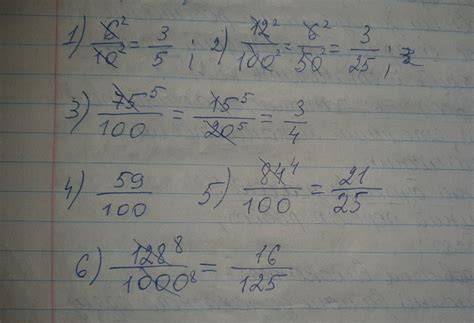 1) 6²/10² = 3/5 ; 2) 12²/100² = 6²/50² = 3/25 ;
3) 75⁵/100 = 15⁵/20⁵ = 3/4
4) 59/100 5) 84⁴/100 = 21/25
6) 128⁸/1000⁸ = 16/125